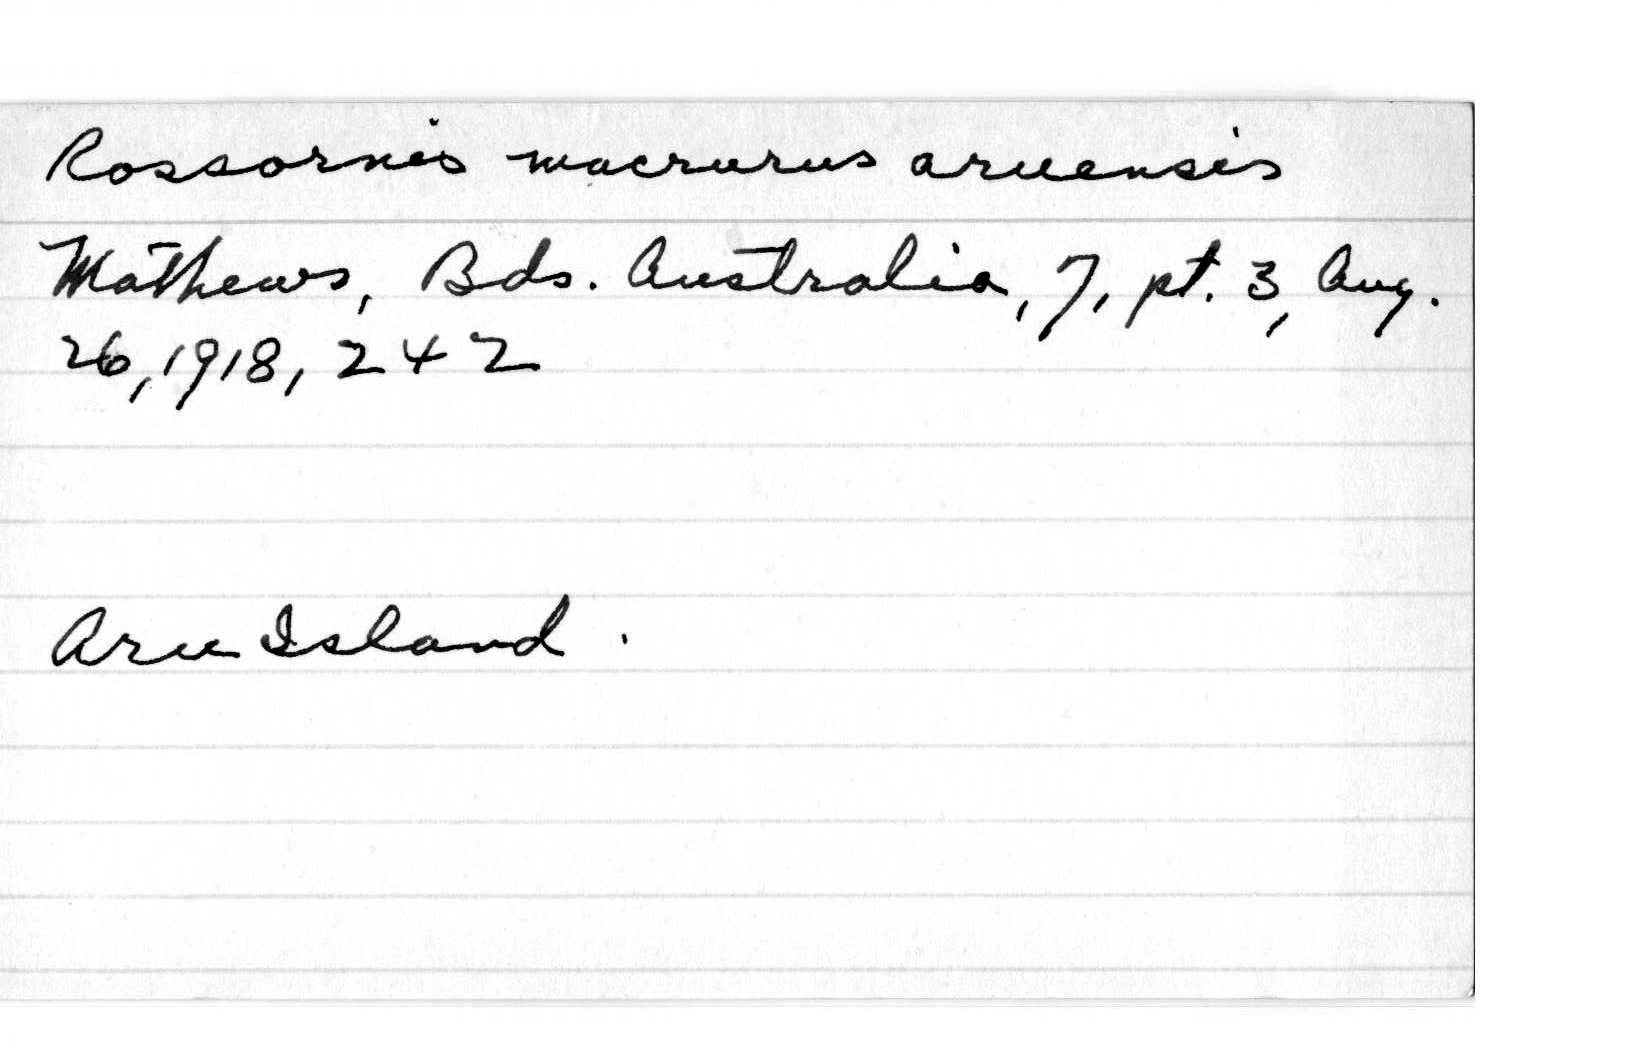 Rossornis macrurus aruensis
Mathews, Bds. Australia, 7, pt. 3, Aug.
26, 1918, 242
Aru Island.